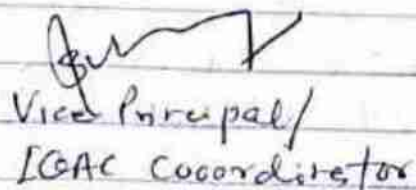 Vice Principal/
IQAC Cocordinator